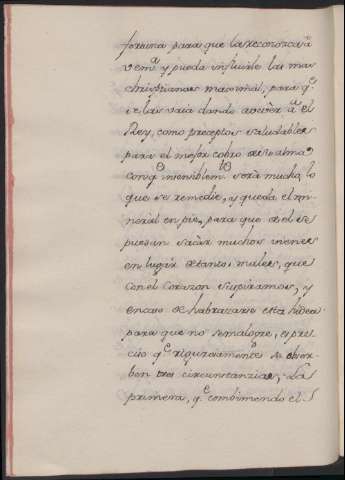 fortuna para que la reconozca à
vemª. y pueda influirle las mas
christianas maximas, para qᵉ
se las vaia dando à veèr àª el
Rey, como preceptos saludables
para el mejor cobro de su alma
con qᵉ insensiblemᵗᵉ será mucho lo
que se remedie, y queda el mi-
neral en pie, para que de el se
puedan sacàr muchos vienes
en lugàr de tantos males, que
con el corazon suspiramos, y
en caso de habrazarse esta hidea
para que no se malogre, es pre-
cisò qᵉ rigurosamente se obser-
ben tres circunstanzias; La
primera, qᵉ combiniendo el S